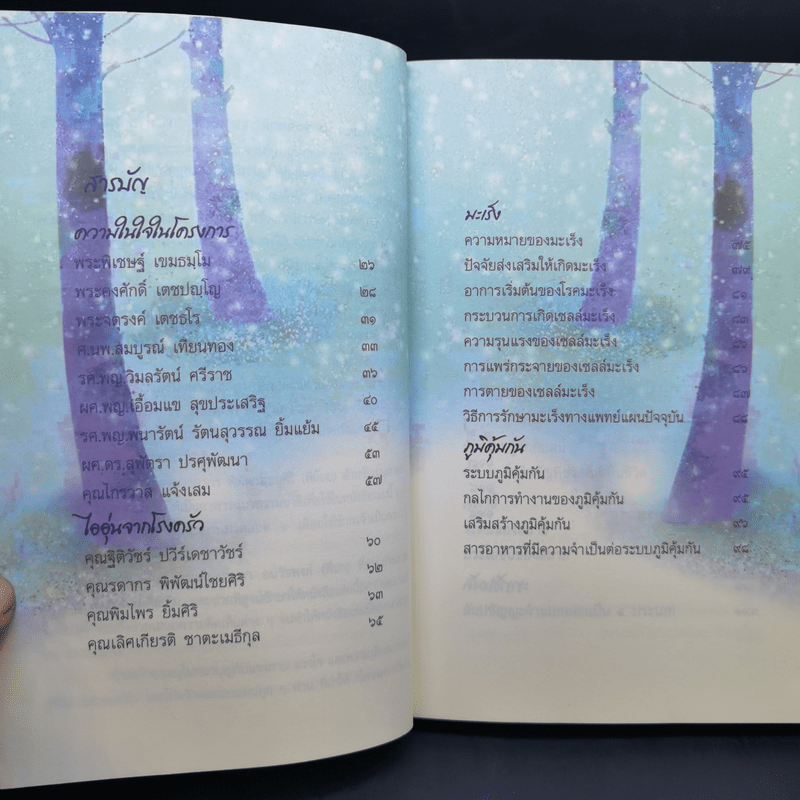 สารบัญ
ความในใจในโครงการ
พระพิเชษฐ์ เขมธมฺโม ๒๖
พระคงศักดิ์ เตชปญฺโญ ๒๘
พระจตุรงค์ เตชธโร ๓๑
ศ.นพ.สมบูรณ์ เทียนทอง ๓๓
รศ.พญ.วิมลรัตน์ ศรีราช ๓๖
ผศ.พญ.เอื้อมแข สุขประเสริฐ ๔๐
รศ.พญ.พนารัตน์ รัตนสุวรรณ ยิ้มแย้ม ๔๕
ผศ.ดร.สุพัตรา ปรศุพัฒนา ๕๓
คุณไกรวาส แจ้งเสม ๕๗
ไออุ่นจากโรงครัว
คุณฐิติวัชร์ ปวีร์เดชาวัชร์ ๖๐
คุณรดากร พิพัฒน์ไชยศิริ ๖๒
คุณพิมไพร ยิ้มศิริ ๖๓
คุณเลิศเกียรติ ชาตะเมธีกุล ๖๕
มะเร็ง
ความหมายของมะเร็ง ๗๕
ปัจจัยส่งเสริมให้เกิดมะเร็ง ๗๙
อาการเริ่มต้นของโรคมะเร็ง ๘๑
กระบวนการเกิดเซลล์มะเร็ง ๘๓
ความรุนแรงของเซลล์มะเร็ง ๘๖
การแพร่กระจายของเซลล์มะเร็ง ๘๖
การตายของเซลล์มะเร็ง ๘๗
วิธีการรักษามะเร็งทางแพทย์แผนปัจจุบัน ๘๘
ภูมิคุ้มกัน
ระบบภูมิคุ้มกัน ๙๕
กลไกการทำงานของภูมิคุ้มกัน ๙๕
เสริมสร้างภูมิคุ้มกัน ๙๖
สารอาหารที่มีความจำเป็นต่อระบบภูมิคุ้มกัน ๙๘